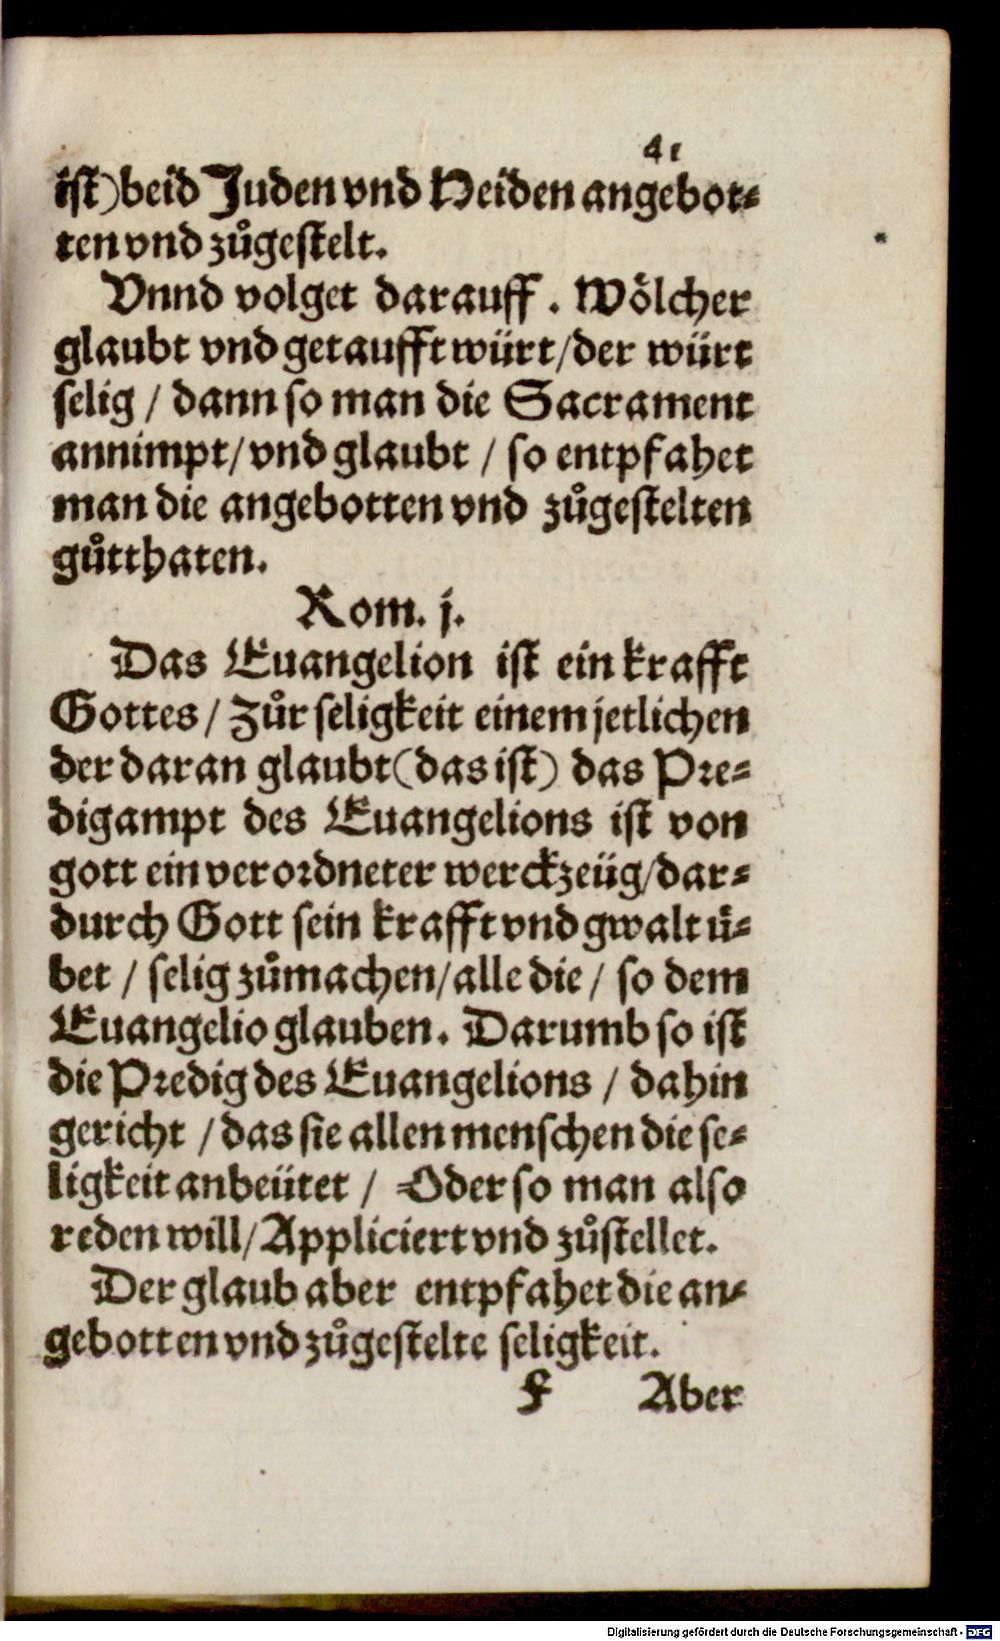 41
ist) beid Juden vnd Heiden angebot-
ten vnd zůgestelt.
Vnnd volget darauff. Wölcher
glaubt vnd getaufft würt/ der würt
selig / dann so man die Sacrament
annimpt/ vnd glaubt / so entpfahet
man die angebotten vnd zůgestelten
gůtthaten.
Rom. j.
Das Euangelion ist ein krafft
Gottes/ Zůr seligkeit einem jetlichen
der daran glaubt (das ist) das Pre-
digampt des Euangelions ist von
gott ein verordneter werckzeüg/ dar-
durch Gott sein krafft vnd gwalt ü-
bet / selig zůmachen/ alle die / so dem
Euangelio glauben. Darumb so ist
die Predig des Euangelions / dahin
gericht / das sie allen menschen die se-
ligkeit anbeütet / Oder so man also
reden will/ Appliciert vnd zůstellet.
Der glaub aber entpfahet die an-
gebotten vnd zůgestelte seligkeit.
F Aber
Digitalisierung gefördert durch die Deutsche Forschungsgemeinschaft - DFG